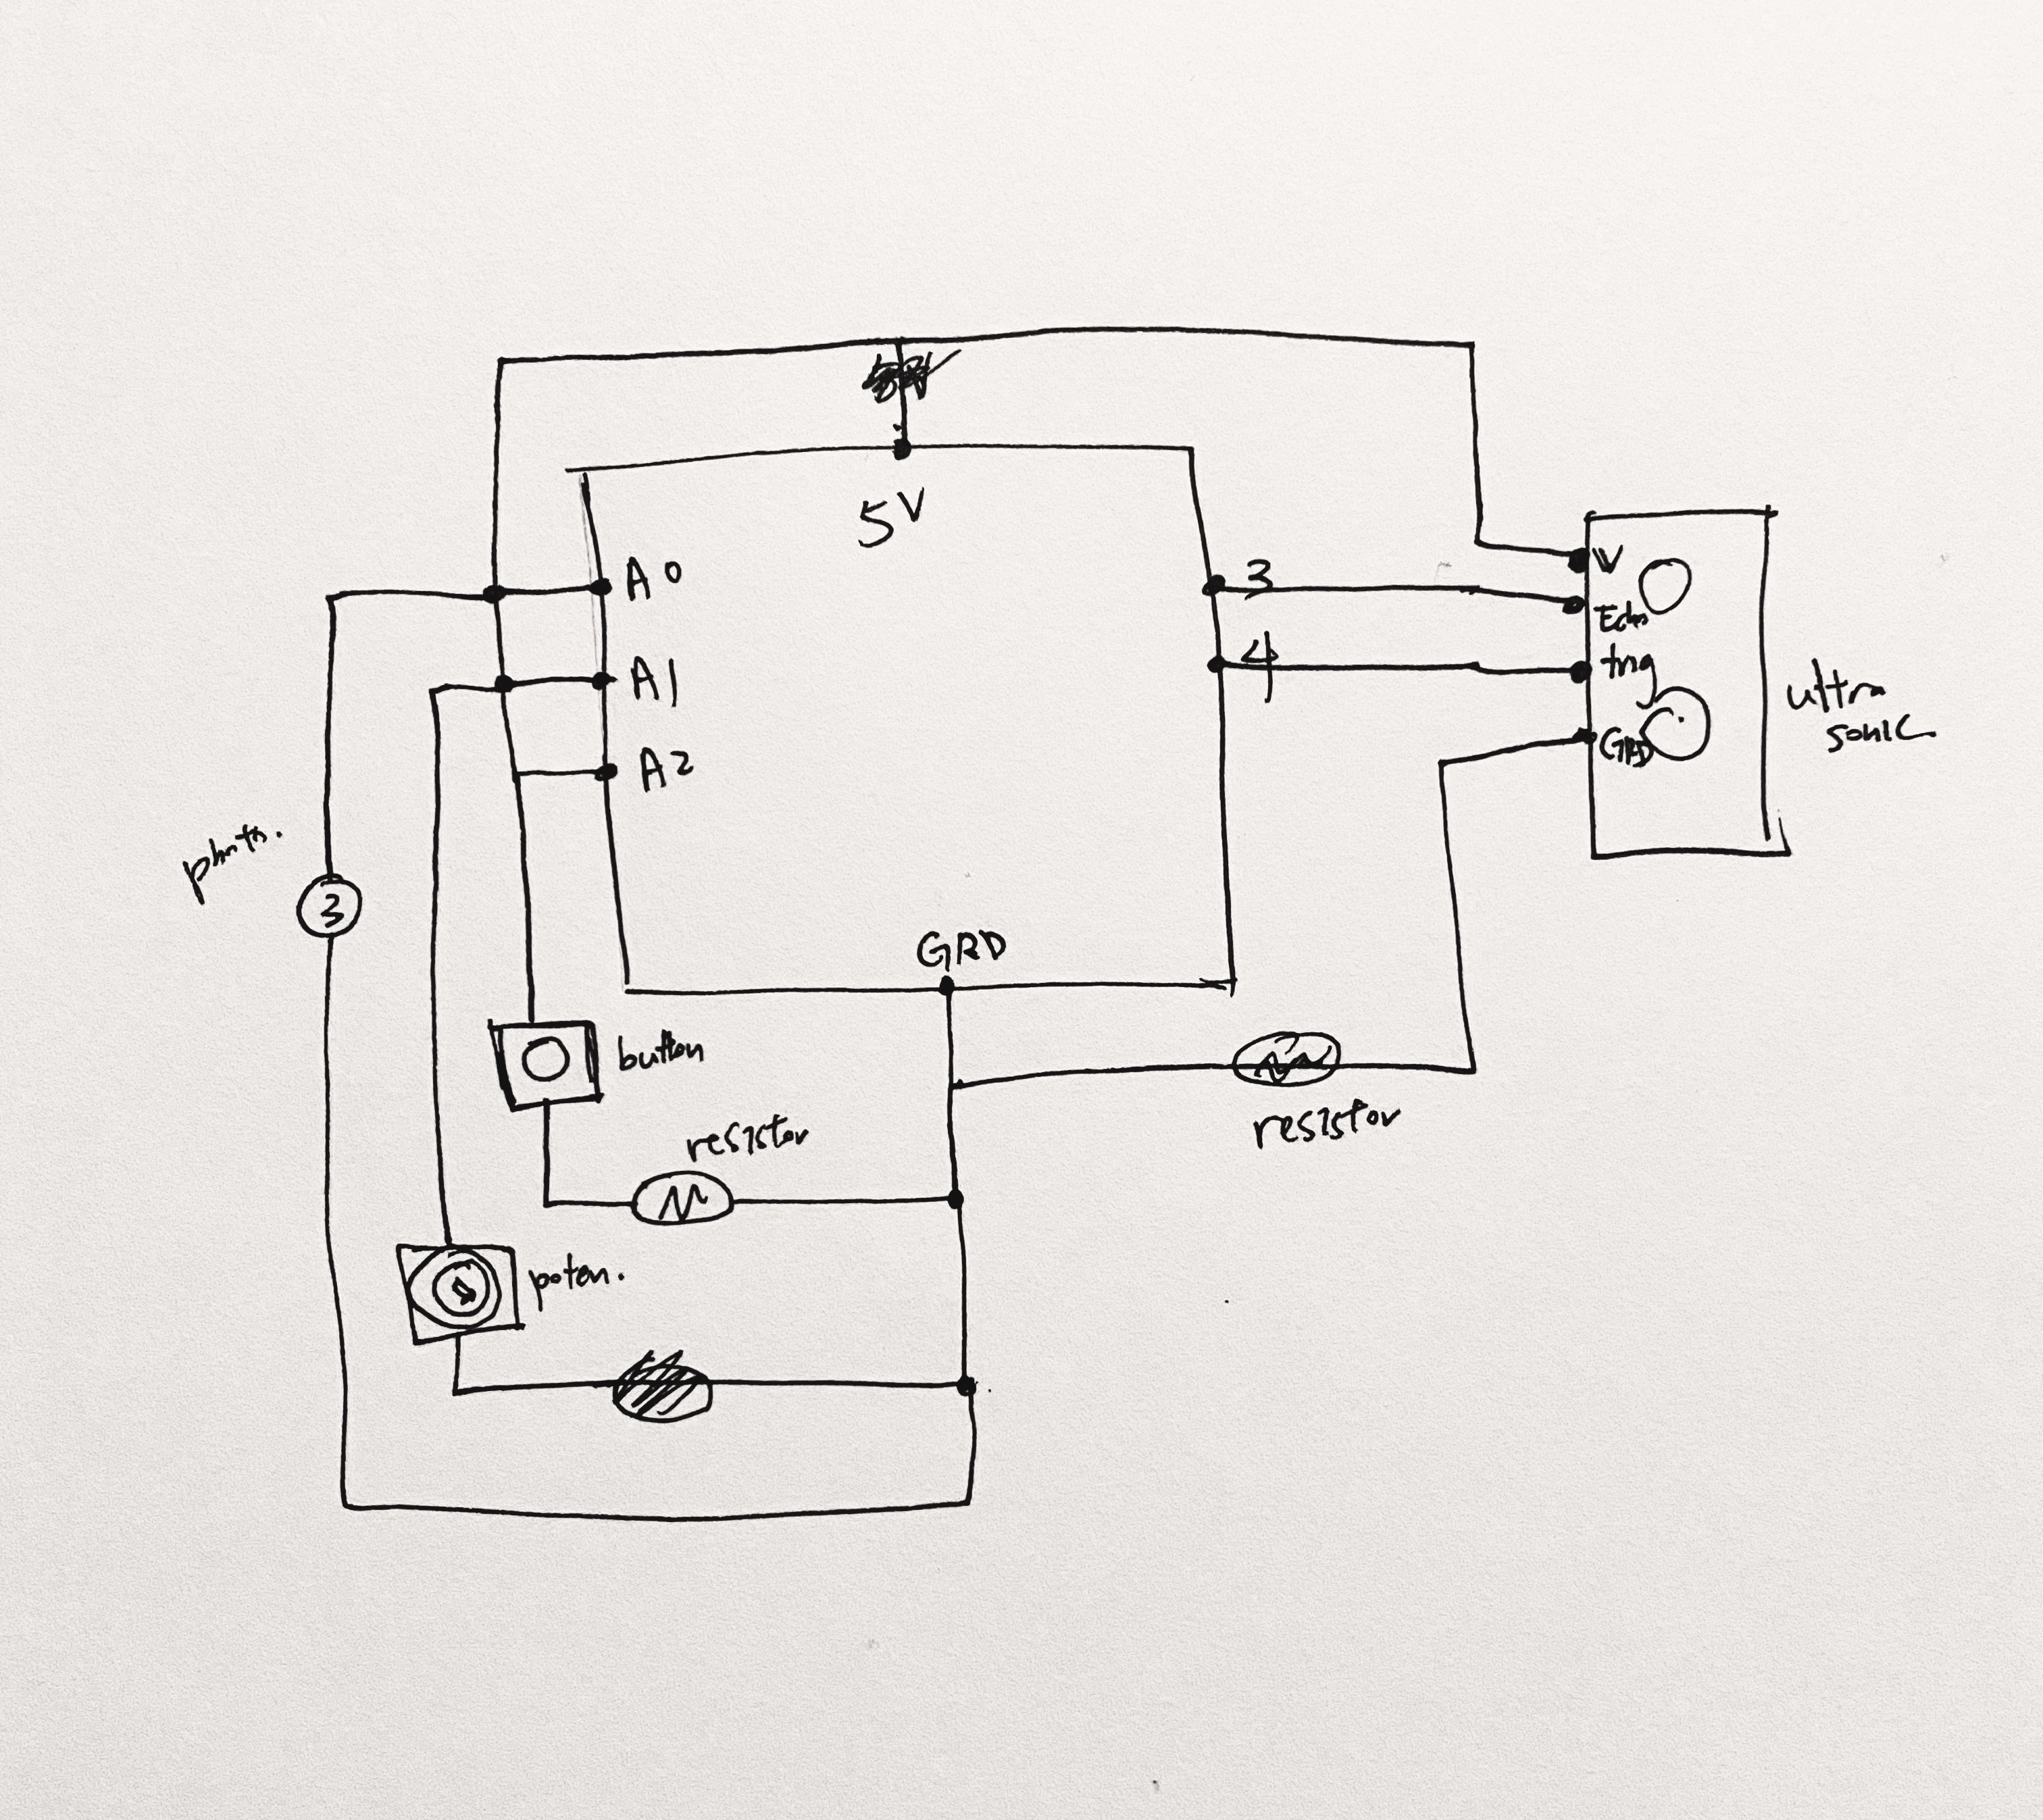 5V
A0
A1
A2
3
4
V
Echo
trig
GRD
ultra
sonic
photo.
3
GRD
button
resistor
resistor
poten.